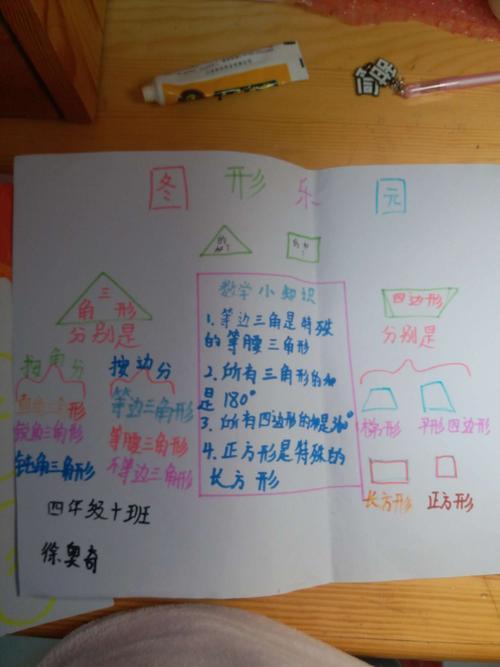 图形乐园
三
角形
分别是
按角分
按边分
直角三角形
锐角三角形
钝角三角形
等边三角形
等腰三角形
不等边三角形
数学小知识
1.等边三角是特殊
的等腰三角形
2.所有三角形的和
是180°
3.所有四边形的和是360°
4.正方形是特殊的
长方形
四边形
分别是
梯形
平形四边形
长方形
正方形
四年级十班
徐奥奇